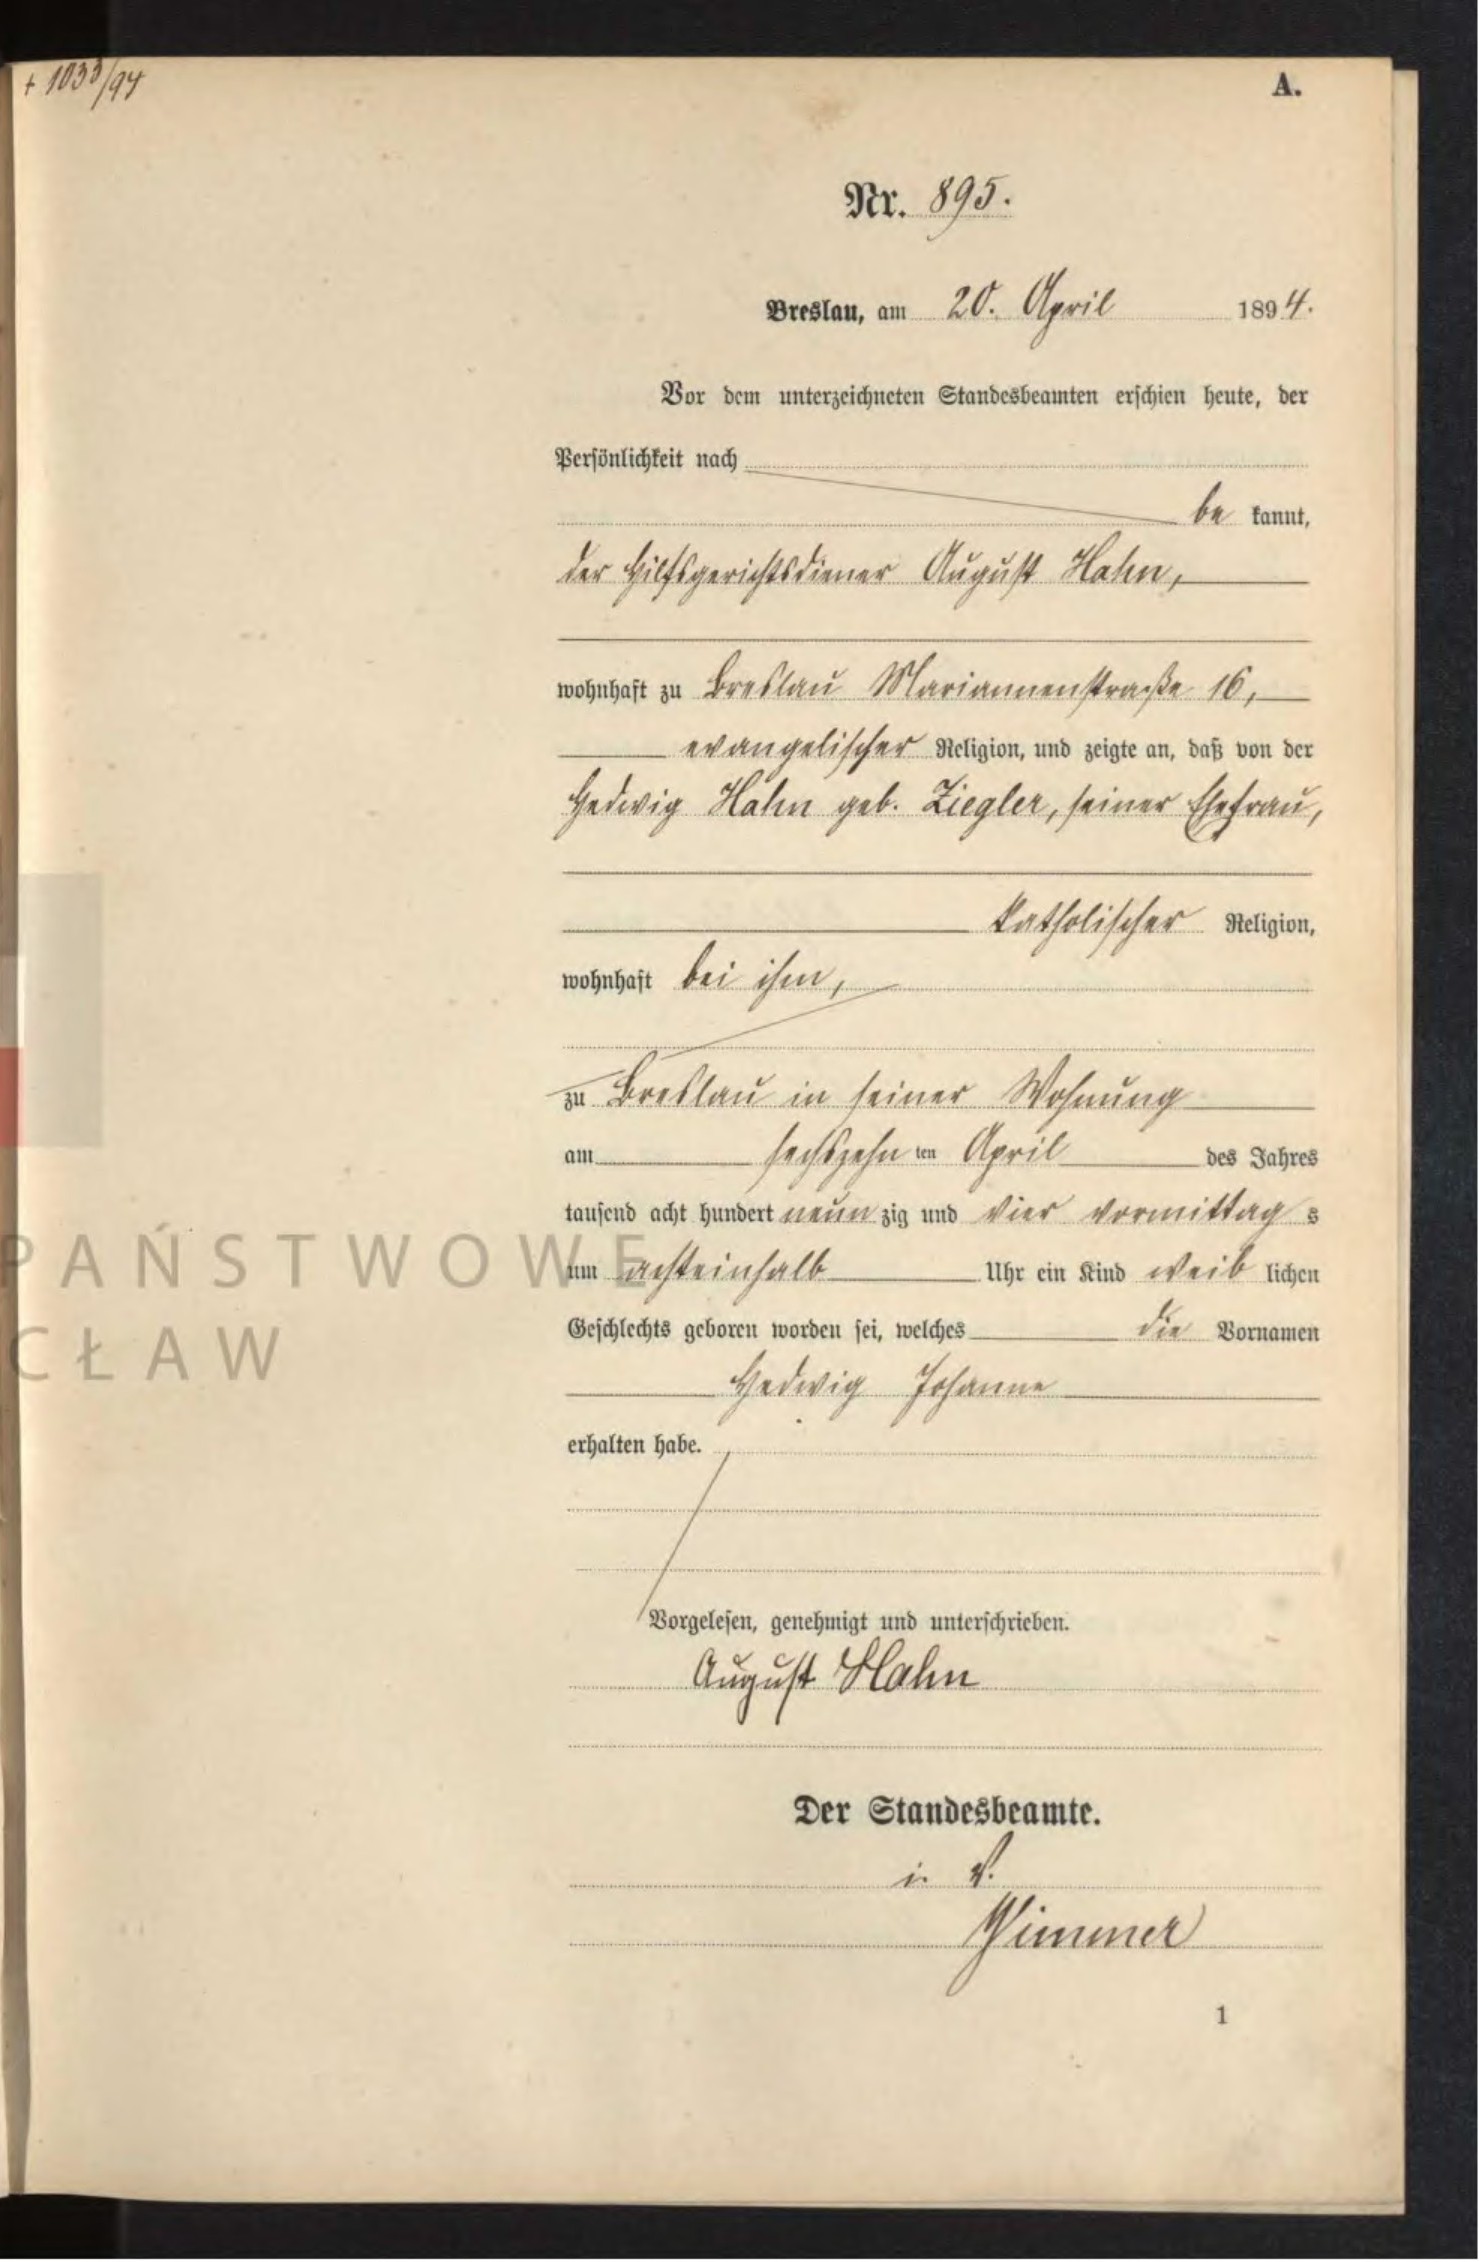 + 1033/94
A.
Nr. 895.
Breslau, am 20. April 1894.
Vor dem unterzeichneten Standesbeamten erschien heute, der
Persönlichkeit nach
be kannt,
der Hilfsgerichtsdiener August Hahn,
wohnhaft zu Breslau Mariannenstraße 16,
evangelischer Religion, und zeigte an, daß von der
Hedwig Hahn geb. Ziegler, seiner Ehefrau,
katholischer Religion,
wohnhaft bei ihm,
zu Breslau in seiner Wohnung
am sechszehn ten April des Jahres
tausend acht hundert neun zig und vier vormittag s
um achteinhalb Uhr ein Kind weib lichen
Geschlechts geboren worden sei, welches die Vornamen
Hedwig Johanne
erhalten habe.
Vorgelesen, genehmigt und unterschrieben.
August Hahn
Der Standesbeamte.
i. V.
1
PAŃSTWOWE
CŁAW